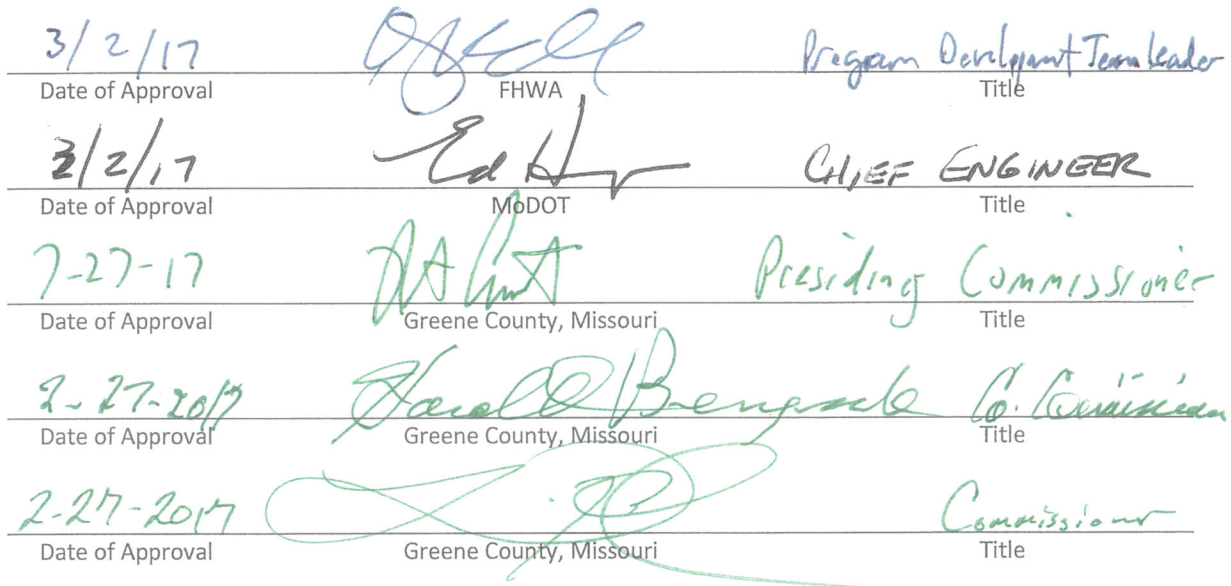 3/2/17 Program Development Team Leader
Date of Approval FHWA Title
3/2/17 Ed H CHIEF ENGINEER
Date of Approval MoDOT Title
2-27-17 Presiding Commissioner
Date of Approval Greene County, Missouri Title
2-27-2017 Harold Bengsch
Date of Approval Greene County, Missouri Title
2-27-2017 Commissioner
Date of Approval Greene County, Missouri Title